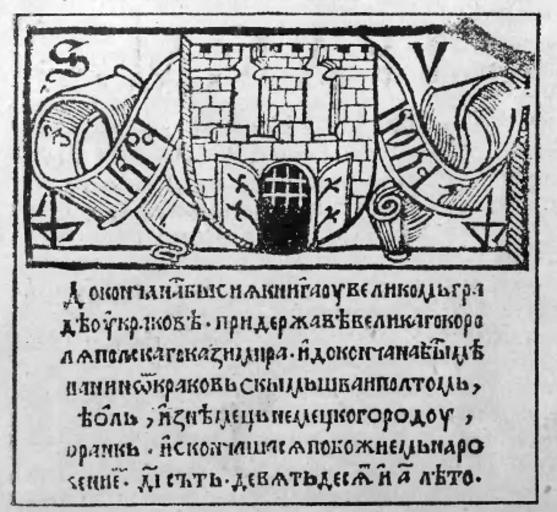 S V
Докончана бысиꙗ книга оу великомь гра
дѣ оу краковѣ · придержавѣ великаго коро
лѧ полскаго казимира · и докончана бы мѣ
щанинѿ краковьскымь шваиполтомь,
ѣоль, из нѣмець немецкого родоу,
ѳранкь · и скончашасѧ побожиемь наро
жениемь · д҃і сътъ · деветьдесѧ и а҃ лѣто ·